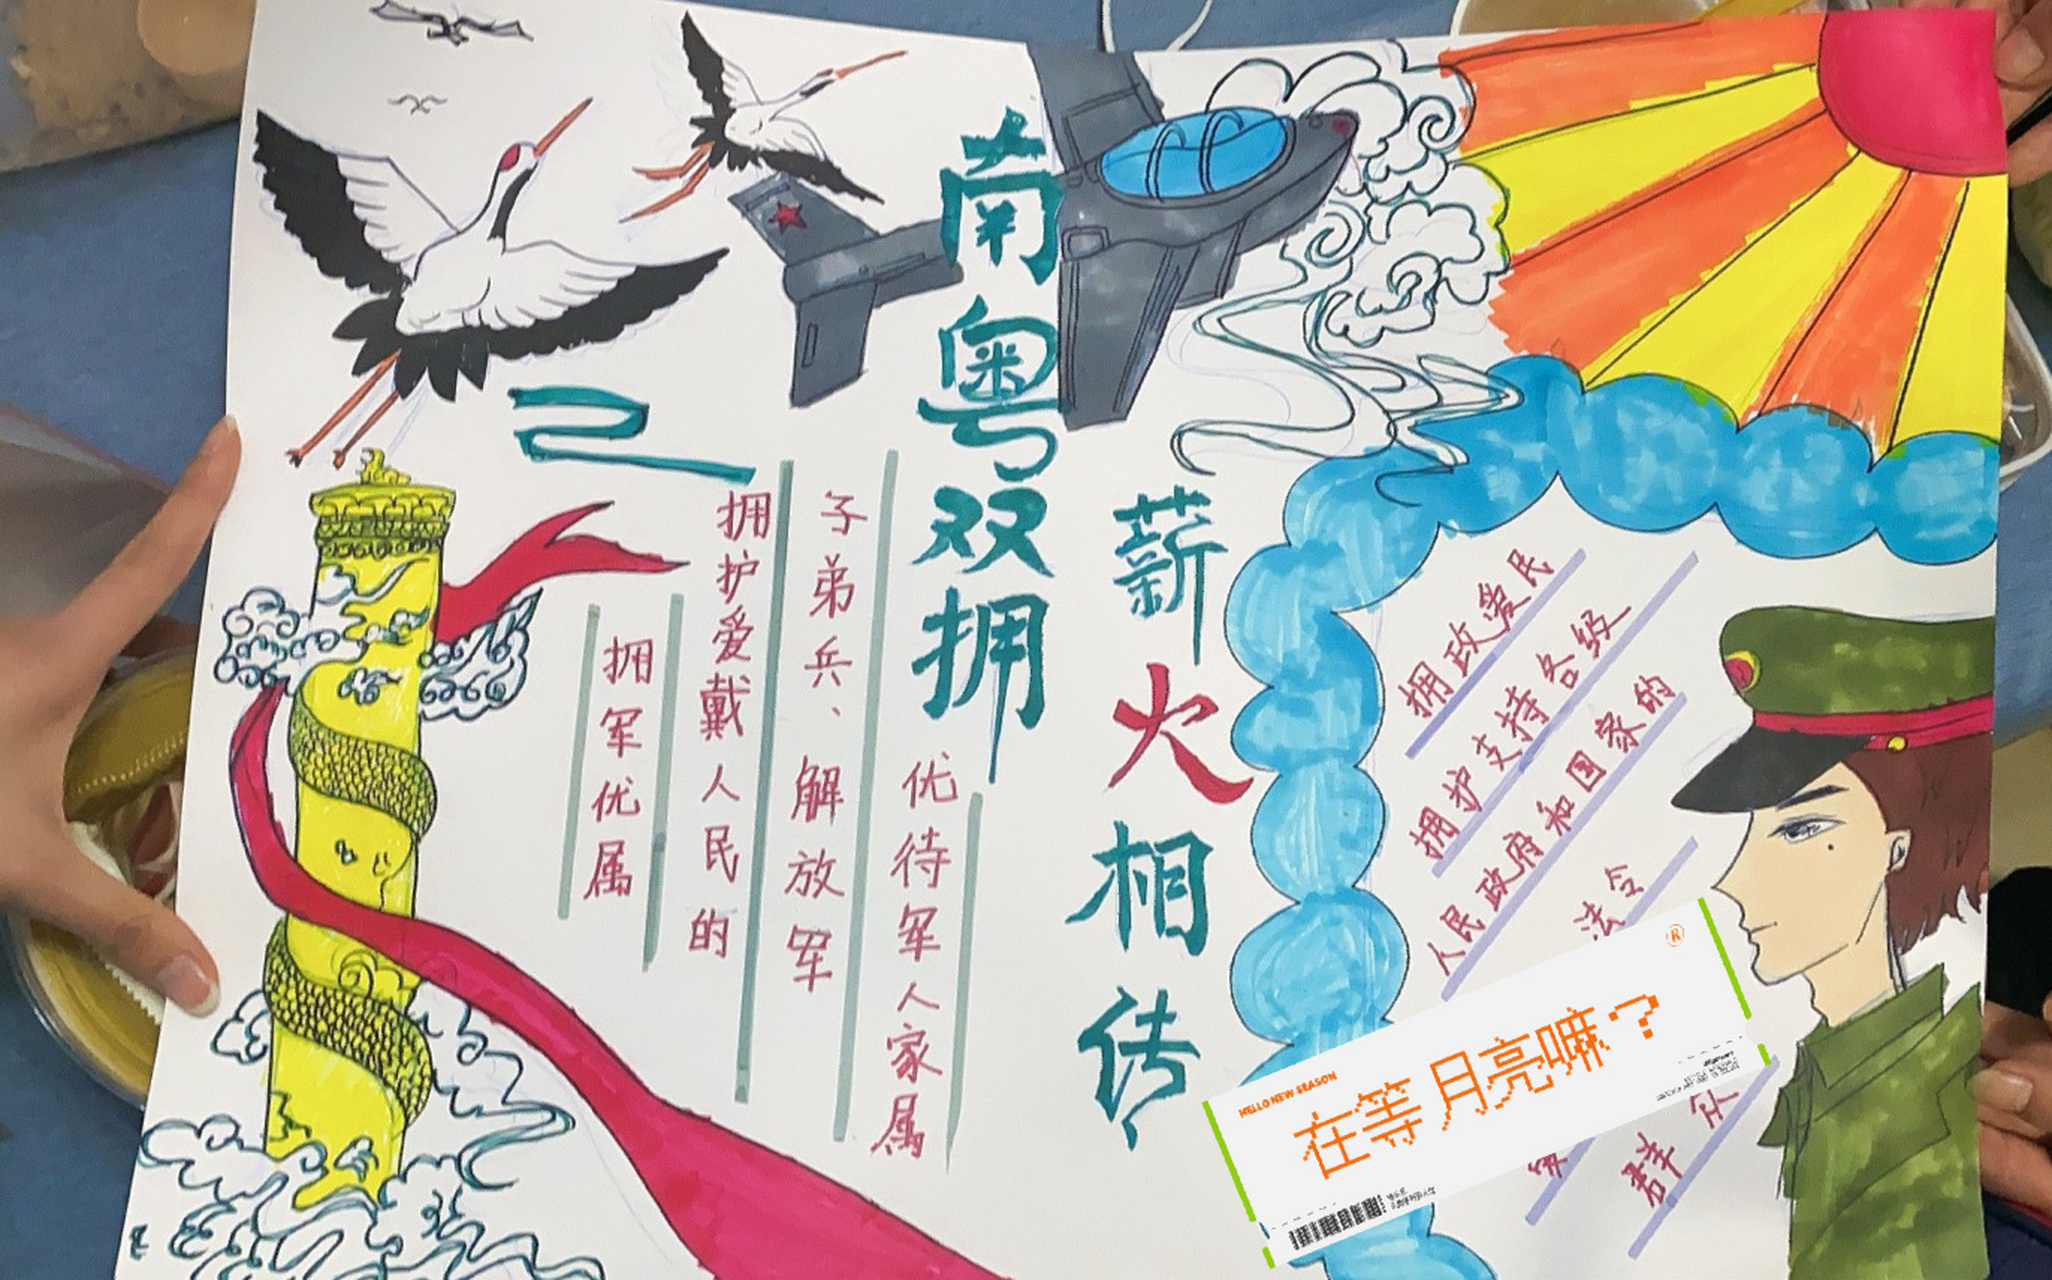 南粤双拥
薪火相传
优待军人家属
子弟兵、解放军
拥护爱戴人民的
拥军优属
拥政爱民
拥护支持各级
人民政府和国家的
法令
群众
HELLO NEW SEASON
在等月亮嘛？
®